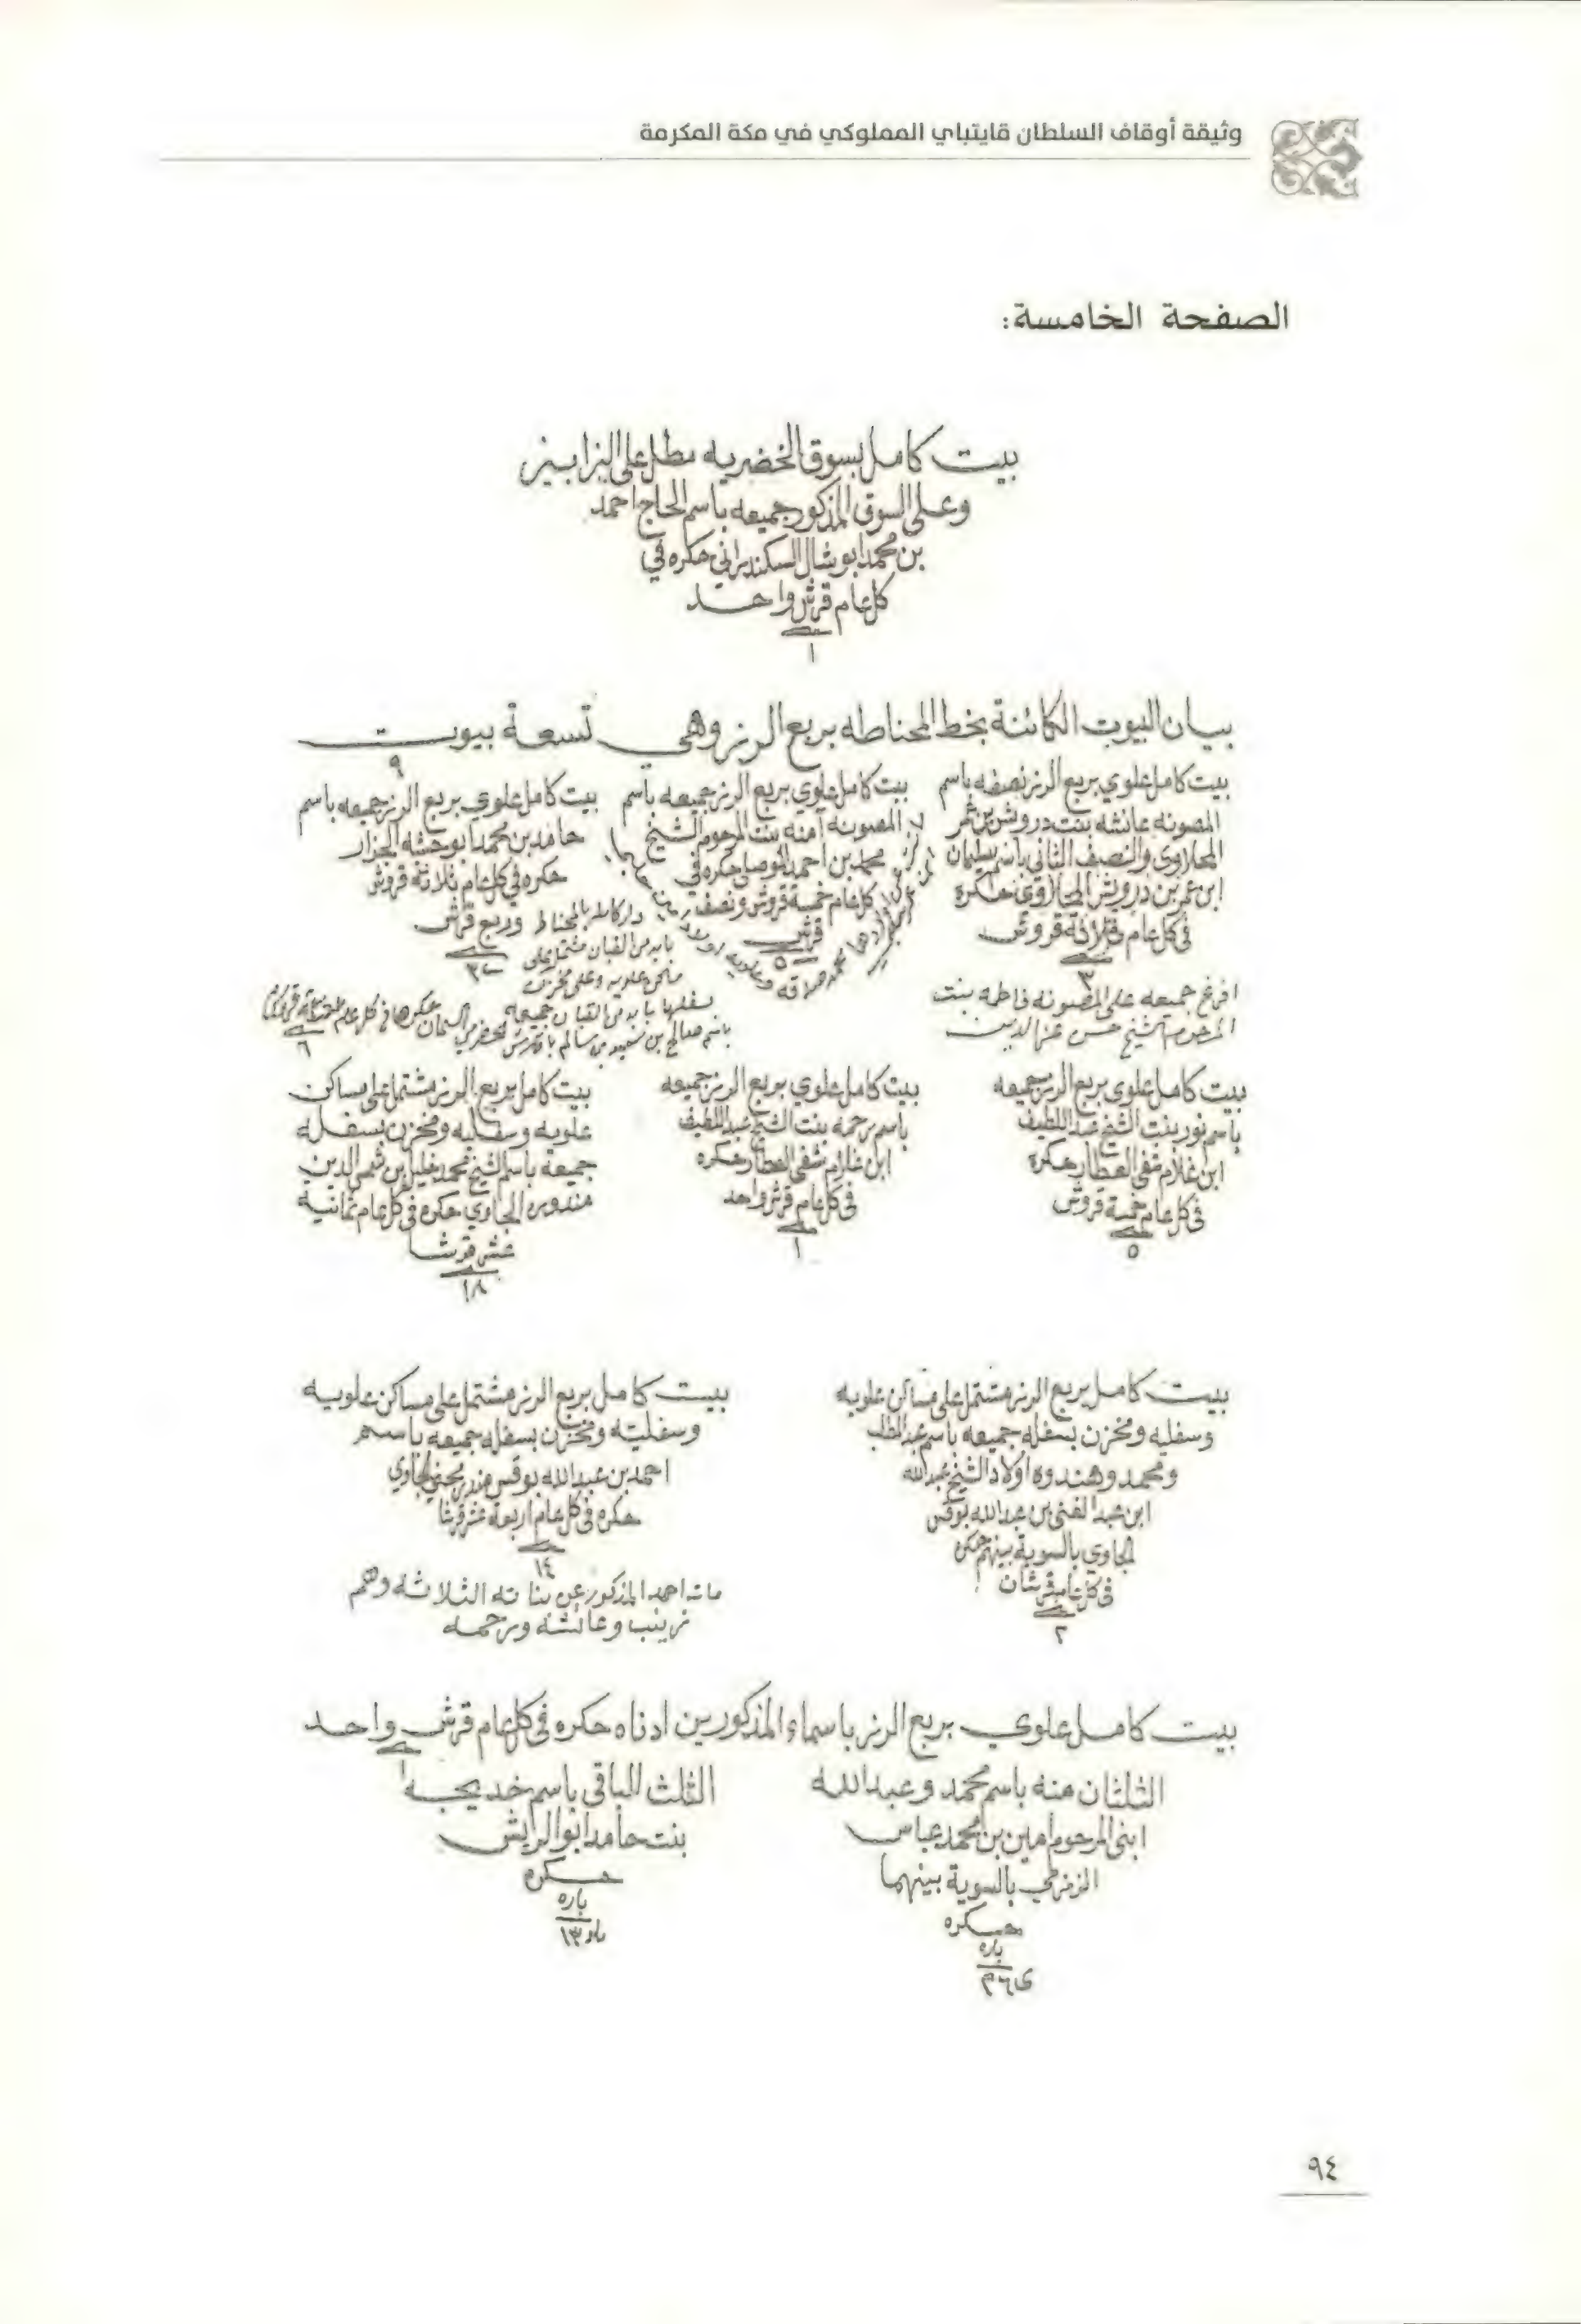 وثيقة أوقاف السلطان قايتباي المملوكي في مكة المكرمة
الصفحة الخامسة:
بيت كامل بسوق الخضريه مطل على البزابيز
وعلى السوق المذكور جميعه باسم الحاج احمد
بن محمد ابو شال السكندراني حكره في
كل عام قرش واحد
١
بيان البيوت الكائنة بخط المحناطه بربع الرز وهي تسعة بيوت
٩
بيت كامل علوي بربع الرز نصفه باسم
المصونه عائشه بنت درويش بن عمر
المحلاوي والنصف الثاني باسم سليمان
ابن عمر بن درويش المحلاوي حكره
في كل عام ثلاثة قروش
٣
افرغ جميعه على المصونه فاطمه بنت
المرحوم الشيخ حسن عز الدين
بيت كامل علوي بربع الرز جميعه باسم
المصونه آمنه بنت المرحوم الشيخ
محمد بن احمد حكره في
كل عام خمسة قروش ونصف
قرش
٥
بيت كامل علوي بربع الرز جميعه باسم
حامد بن محمد ابو حشه الجزار
حكره في كل عام ثلاثة قروش
وربع قرش
٣
دار كامله بالمحناط
بابه من القبان مشتمل على
علويه وعلى مخزن
بسفلها بابه من القبان جميعه
باسم صالح بن سعيد بن سالم
٦
بيت كامل علوي بربع الرز جميعه
باسم نور بنت الشيخ عبد اللطيف
ابن غلام شفي العطار حكره
في كل عام خمسة قروش
٥
بيت كامل علوي بربع الرز جميعه
باسم رحمه بنت الشيخ عبد اللطيف
ابن غلام شفي العطار حكره
في كل عام قرش واحد
١
بيت كامل بربع الرز مشتمل على مساكن
علويه وسفليه ومخزن بسفله
جميعه باسم الشيخ محمد خليل بن شمس الدين
مندوره الجاوي حكره في كل عام ثمانية
عشر قرشا
١٨
بيت كامل بربع الرز مشتمل على مساكن علويه
وسفليه ومخزن بسفله جميعه باسم عبد المطلب
ومحمد وهندوه اولاد الشيخ عبد الله
ابن عبد الغني بن عبد الله بوقس
الجاوي بالسوية بينهم حكره
في كل عام قرشان
٢
بيت كامل بربع الرز مشتمل على مساكن علويه
وسفليه ومخزن بسفله جميعه باسم
احمد بن عبد الله بوقس الجاوي
حكره في كل عام اربعة عشر قرشا
١٤
مات احمد المذكور عن بناته الثلاثه وهم
زينب وعائشه ورحمه
بيت كامل علوي بربع الرز باسماء المذكورين ادناه حكره في كل عام قرش واحد
١
الثلثان منه باسم محمد وعبد الله
ابني المرحوم امين بن محمد عباس
الزمزمي بالسوية بينهما
حكره
باره
٢٦
الثلث الباقي باسم خديجه
بنت حامد ابو الريش
حكره
باره
١٣
٩٤